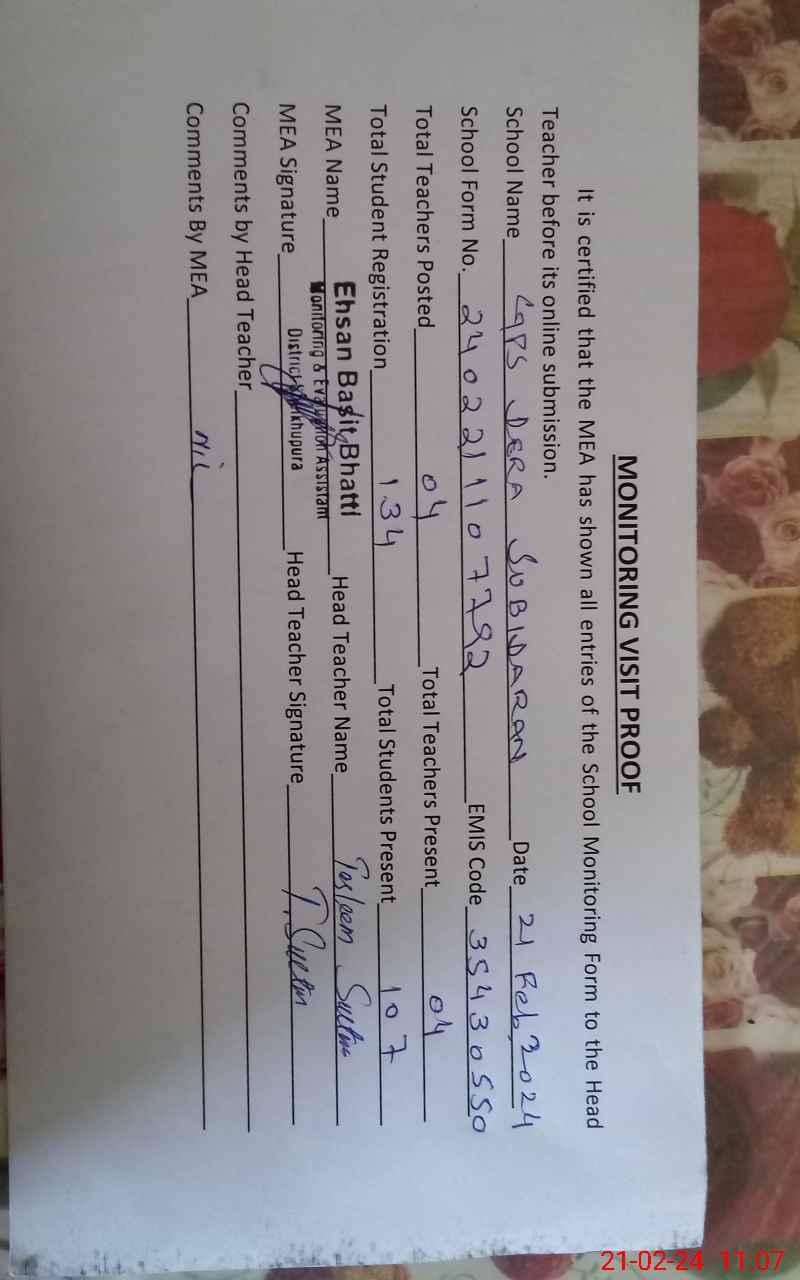 MONITORING VISIT PROOF
It is certified that the MEA has shown all entries of the School Monitoring Form to the Head
Teacher before its online submission.
School Name GGPS DERA SUBIDARAN Date 21 Feb, 2024
School Form No. 24022111077792 EMIS Code 35430550
Total Teachers Posted 04 Total Teachers Present 04
Total Student Registration 134 Total Students Present 107
MEA Name Ehsan Basit Bhatti Head Teacher Name Tasleem Sultan
Monitoring & Evaluation Assistant
District Sheikhupura
MEA Signature Head Teacher Signature T. Sultan
Comments by Head Teacher
Comments By MEA Nil
21-02-24 11:07